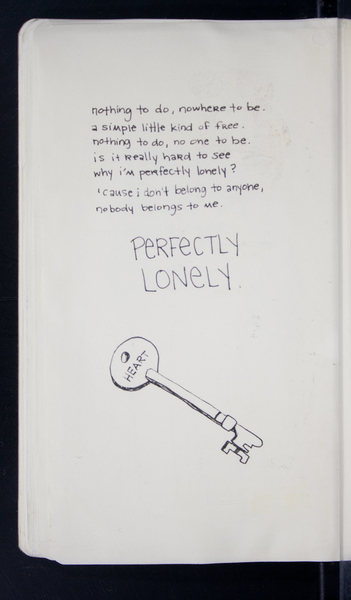 nothing to do, nowhere to be.
a simple little kind of free.
nothing to do, no one to be.
is it really hard to see
why i'm perfectly lonely?
'cause i don't belong to anyone,
nobody belongs to me.
PERFECTLY
LONELY.
HEART